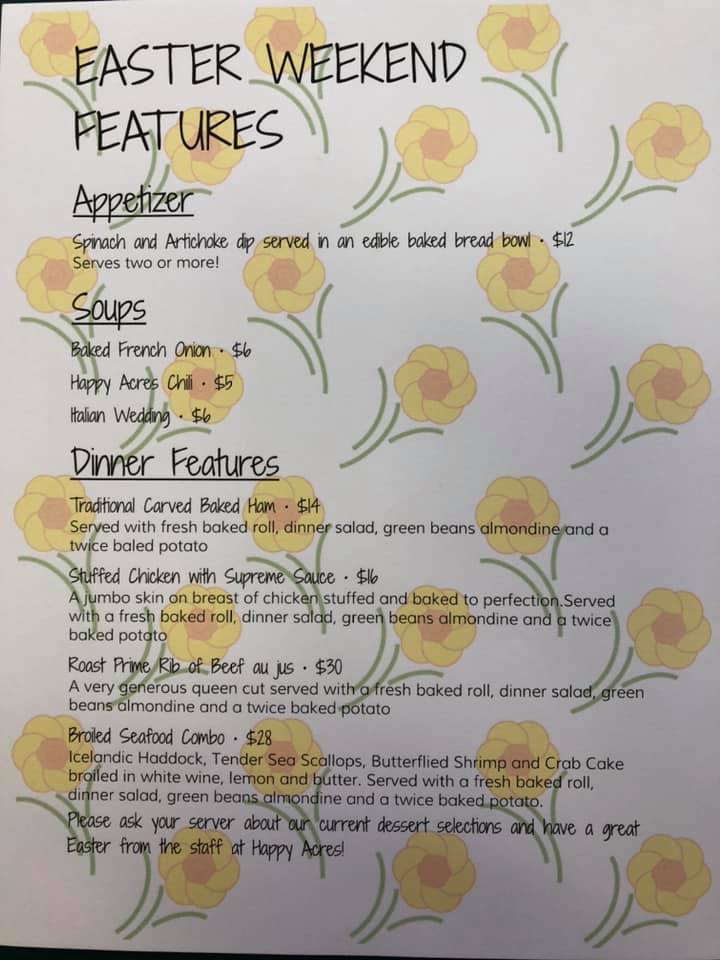 EASTER WEEKEND
FEATURES
Appetizer
Spinach and Artichoke dip served in an edible baked bread bowl • $12
Serves two or more!
Soups
Baked French Onion • $6
Happy Acres Chili • $5
Italian Wedding • $6
Dinner Features
Traditional Carved Baked Ham • $14
Served with fresh baked roll, dinner salad, green beans almondine and a
twice baled potato
Stuffed Chicken with Supreme Sauce • $16
A jumbo skin on breast of chicken stuffed and baked to perfection.Served
with a fresh baked roll, dinner salad, green beans almondine and a twice
baked potato
Roast Prime Rib of Beef au jus • $30
A very generous queen cut served with a fresh baked roll, dinner salad, green
beans almondine and a twice baked potato
Broiled Seafood Combo • $28
Icelandic Haddock, Tender Sea Scallops, Butterflied Shrimp and Crab Cake
broiled in white wine, lemon and butter. Served with a fresh baked roll,
dinner salad, green beans almondine and a twice baked potato.
Please ask your server about our current dessert selections and have a great
Easter from the staff at Happy Acres!